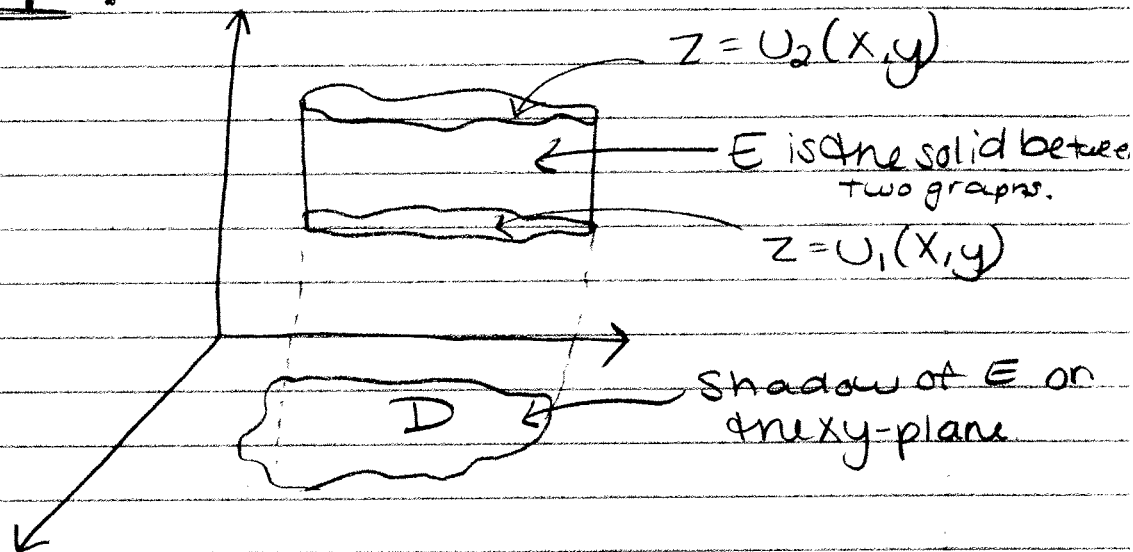 Z = U₂(x,y)
E is the solid betwee
two graphs.
Z = U₁(x,y)
D
Shadow of E on
the xy-plane